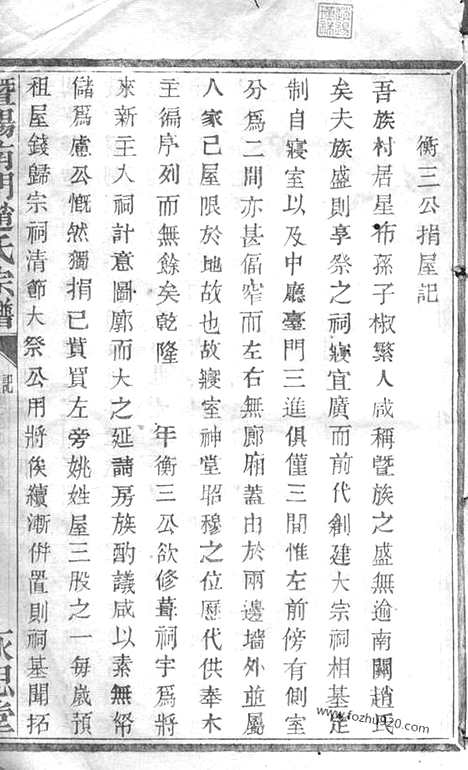 衡三公捐屋記
吾族村居星布孫子椒繁人咸稱暨族之盛無逾南闗趙氏
矣夫族盛則享祭之祠寢宜廣而前代創建大宗祠相基定
制自寢室以及中廳臺門三進俱僅三間惟左前傍有側室
分爲二間亦甚偪窄而左右無廊廂蓋由於兩邊墻外並屬
人家己屋限於地故也故寢室神堂昭穆之位歷代供奉木
主編序列而無餘矣乾隆 年衡三公欲修葺祠宇爲將
來新主入祠計意圖廓而大之延請房族酌議咸以素無帑
儲爲慮公慨然獨捐己貲買左旁姚姓屋三股之一每歲預
租屋錢歸宗祠清節大祭公用將俟續漸併置則祠基開拓
暨陽南門趙氏宗譜
記
永思堂
www.fozhu920.com